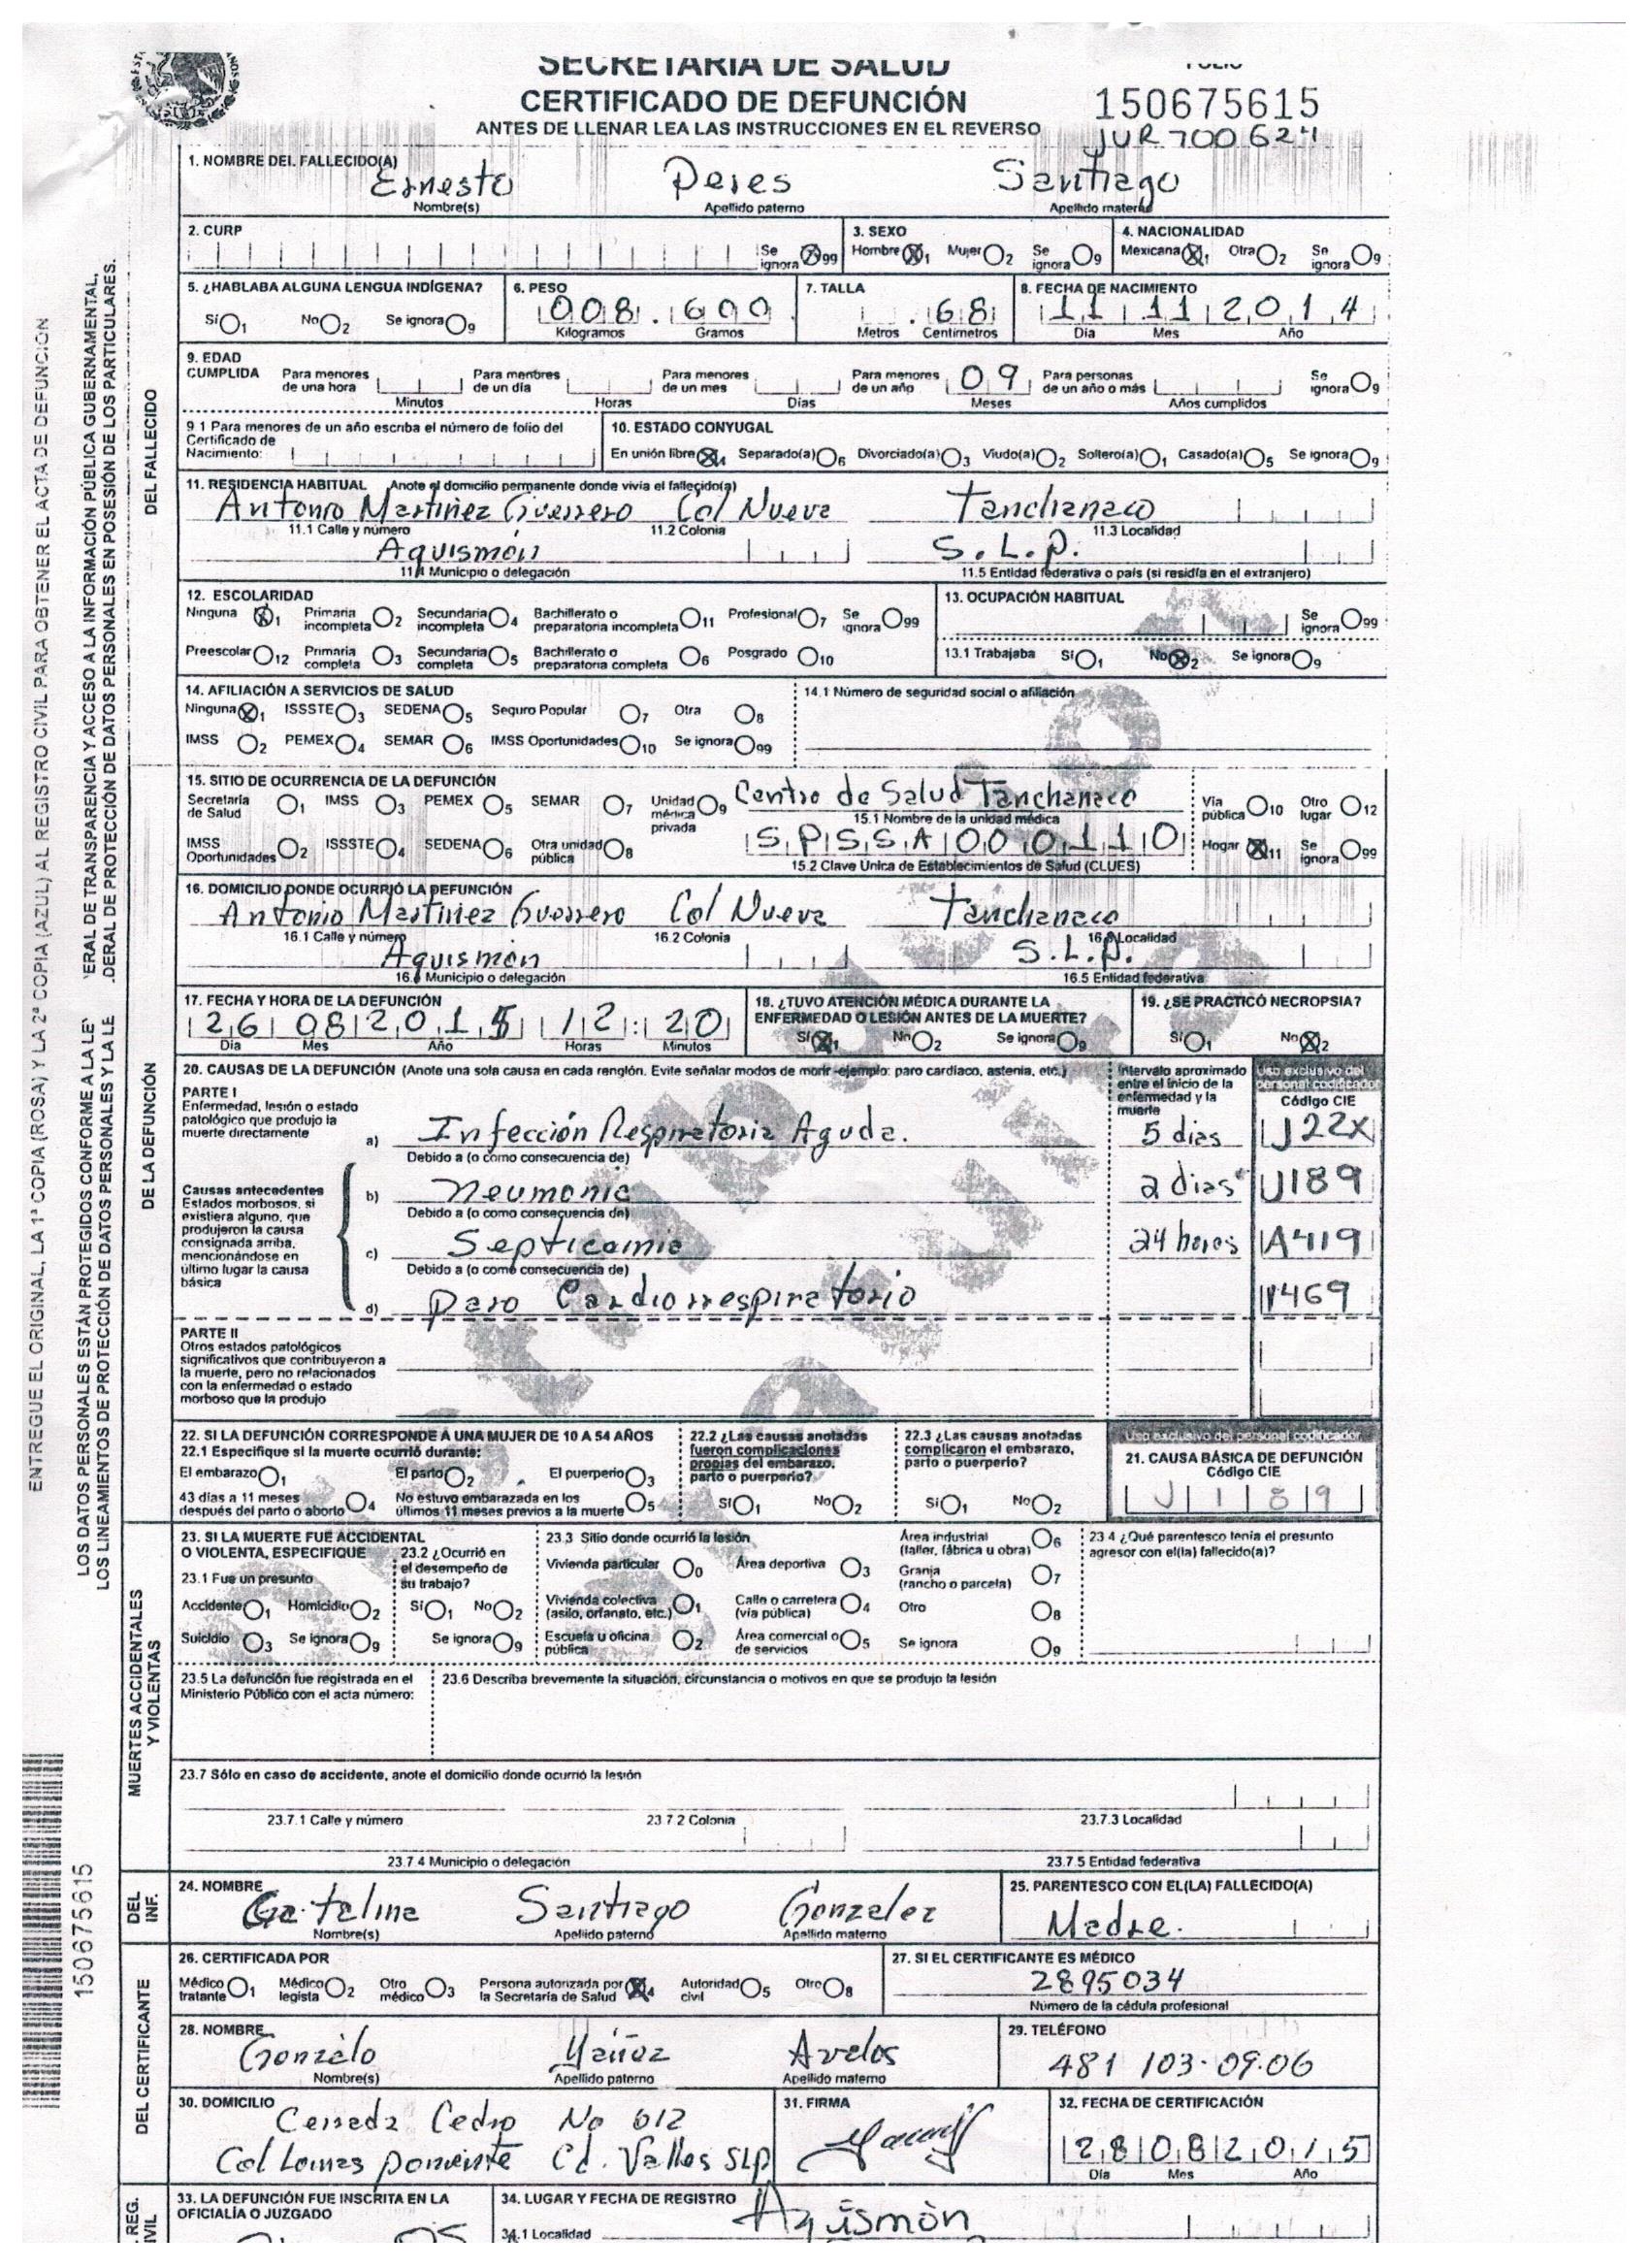 SECRETARIA DE SALUD
CERTIFICADO DE DEFUNCIÓN
ANTES DE LLENAR LEA LAS INSTRUCCIONES EN EL REVERSO
FOLIO
150675615
JUR 700624
1. NOMBRE DEL FALLECIDO(A)
Ernesto Peres Santiago
Nombre(s) Apellido paterno Apellido materno
2. CURP Se ignora 99 3. SEXO Hombre 1 Mujer 2 Se ignora 9 4. NACIONALIDAD Mexicana 1 Otra 2 Se ignora 9
5. ¿HABLABA ALGUNA LENGUA INDÍGENA? Sí 1 No 2 Se ignora 9
6. PESO 008.600 Kilogramos Gramos
7. TALLA .68 Metros Centímetros
8. FECHA DE NACIMIENTO 11 11 2014 Día Mes Año
9. EDAD CUMPLIDA Para menores de una hora Minutos Para menores de un día Horas Para menores de un mes Días Para menores de un año 09 Meses Para personas de un año o más Años cumplidos Se ignora 9
9.1 Para menores de un año escriba el número de folio del Certificado de Nacimiento:
10. ESTADO CONYUGAL
En unión libre 4 Separado(a) 6 Divorciado(a) 3 Viudo(a) 2 Soltero(a) 1 Casado(a) 5 Se ignora 9
11. RESIDENCIA HABITUAL Anote el domicilio permanente donde vivía el fallecido(a)
Antonio Martinez Guerrero Col Nueva Tanchanaco
11.1 Calle y número 11.2 Colonia 11.3 Localidad
Aquismón S.L.P.
11.4 Municipio o delegación 11.5 Entidad federativa o país (si residía en el extranjero)
12. ESCOLARIDAD
Ninguna 1 Primaria incompleta 2 Secundaria incompleta 4 Bachillerato o preparatoria incompleta 11 Profesional 7 Se ignora 99
Preescolar 12 Primaria completa 3 Secundaria completa 5 Bachillerato o preparatoria completa 6 Posgrado 10
13. OCUPACIÓN HABITUAL Se ignora 99
13.1 Trabajaba Sí 1 No 2 Se ignora 9
14. AFILIACIÓN A SERVICIOS DE SALUD
Ninguna 1 ISSSTE 3 SEDENA 5 Seguro Popular 7 Otra 8
IMSS 2 PEMEX 4 SEMAR 6 IMSS Oportunidades 10 Se ignora 99
14.1 Número de seguridad social o afiliación
15. SITIO DE OCURRENCIA DE LA DEFUNCIÓN
Secretaría de Salud 1 IMSS 3 PEMEX 5 SEMAR 7 Unidad médica privada 9
IMSS Oportunidades 2 ISSSTE 4 SEDENA 6 Otra unidad pública 8
Centro de Salud Tanchanaco
15.1 Nombre de la unidad médica
SPSSA000110
15.2 Clave Única de Establecimientos de Salud (CLUES)
Vía pública 10 Otro lugar 12
Hogar 11 Se ignora 99
16. DOMICILIO DONDE OCURRIÓ LA DEFUNCIÓN
Antonio Martinez Guerrero Col Nueva Tanchanaco
16.1 Calle y número 16.2 Colonia 16.3 Localidad
Aquismón S.L.P.
16.4 Municipio o delegación 16.5 Entidad federativa
17. FECHA Y HORA DE LA DEFUNCIÓN
26 08 2015 12:20
Día Mes Año Horas Minutos
18. ¿TUVO ATENCIÓN MÉDICA DURANTE LA ENFERMEDAD O LESIÓN ANTES DE LA MUERTE?
Sí 1 No 2 Se ignora 9
19. ¿SE PRACTICÓ NECROPSIA?
Sí 1 No 2
20. CAUSAS DE LA DEFUNCIÓN (Anote una sola causa en cada renglón. Evite señalar modos de morir -ejemplo: paro cardíaco, astenia, etc.)
Intervalo aproximado entre el inicio de la enfermedad y la muerte
Uso exclusivo del personal codificador
Código CIE
PARTE I
Enfermedad, lesión o estado patológico que produjo la muerte directamente
a) Infección Respiratoria Aguda. 5 dias J22X
Debido a (o como consecuencia de)
Causas antecedentes
Estados morbosos, si existiera alguno, que produjeron la causa consignada arriba, mencionándose en último lugar la causa básica
b) Neumonia 2 dias J189
Debido a (o como consecuencia de)
c) Septicemia 24 horas A419
Debido a (o como consecuencia de)
d) Paro Cardiorrespiratorio I469
PARTE II
Otros estados patológicos significativos que contribuyeron a la muerte, pero no relacionados con la enfermedad o estado morboso que la produjo
22. SI LA DEFUNCIÓN CORRESPONDE A UNA MUJER DE 10 A 54 AÑOS
22.1 Especifique si la muerte ocurrió durante:
El embarazo 1 El parto 2 El puerperio 3
43 días a 11 meses después del parto o aborto 4 No estuvo embarazada en los últimos 11 meses previos a la muerte 5
22.2 ¿Las causas anotadas fueron complicaciones propias del embarazo, parto o puerperio?
Sí 1 No 2
22.3 ¿Las causas anotadas complicaron el embarazo, parto o puerperio?
Sí 1 No 2
Uso exclusivo del personal codificador
21. CAUSA BÁSICA DE DEFUNCIÓN
Código CIE
J189
23. SI LA MUERTE FUE ACCIDENTAL O VIOLENTA, ESPECIFIQUE
23.1 Fue un presunto
Accidente 1 Homicidio 2
Suicidio 3 Se ignora 9
23.2 ¿Ocurrió en el desempeño de su trabajo?
Sí 1 No 2
Se ignora 9
23.3 Sitio donde ocurrió la lesión
Vivienda particular 0 Área deportiva 3
Vivienda colectiva (asilo, orfanato, etc.) 1 Calle o carretera (vía pública) 4
Escuela u oficina pública 2 Área comercial o de servicios 5
Área industrial (taller, fábrica u obra) 6
Granja (rancho o parcela) 7
Otro 8
Se ignora 9
23.4 ¿Qué parentesco tenía el presunto agresor con el(la) fallecido(a)?
23.5 La defunción fue registrada en el Ministerio Público con el acta número:
23.6 Describa brevemente la situación, circunstancia o motivos en que se produjo la lesión
23.7 Sólo en caso de accidente, anote el domicilio donde ocurrió la lesión
23.7.1 Calle y número 23.7.2 Colonia 23.7.3 Localidad
23.7.4 Municipio o delegación 23.7.5 Entidad federativa
24. NOMBRE
Catalina Santiago Gonzalez
Nombre(s) Apellido paterno Apellido materno
25. PARENTESCO CON EL(LA) FALLECIDO(A)
Madre.
26. CERTIFICADA POR
Médico tratante 1 Médico legista 2 Otro médico 3 Persona autorizada por la Secretaría de Salud 4 Autoridad civil 5 Otro 8
27. SI EL CERTIFICANTE ES MÉDICO
2895034
Número de la cédula profesional
28. NOMBRE
Gonzalo Yañez Avalos
Nombre(s) Apellido paterno Apellido materno
29. TELÉFONO
481 103-09-06
30. DOMICILIO
Cerrada Cedro No 612
Col Lomas poniente Cd. Valles SLP
31. FIRMA
32. FECHA DE CERTIFICACIÓN
28 08 2015
Día Mes Año
33. LA DEFUNCIÓN FUE INSCRITA EN LA OFICIALÍA O JUZGADO
34. LUGAR Y FECHA DE REGISTRO
Aquismòn
34.1 Localidad
DEL FALLECIDO
DE LA DEFUNCIÓN
MUERTES ACCIDENTALES Y VIOLENTAS
DEL INF.
DEL CERTIFICANTE
REG. CIVIL
ENTREGUE EL ORIGINAL, LA 1ª COPIA (ROSA) Y LA 2ª COPIA (AZUL) AL REGISTRO CIVIL PARA OBTENER EL ACTA DE DEFUNCIÓN
LOS DATOS PERSONALES ESTÁN PROTEGIDOS CONFORME A LA LEY ERAL DE TRANSPARENCIA Y ACCESO A LA INFORMACIÓN PÚBLICA GUBERNAMENTAL,
LOS LINEAMIENTOS DE PROTECCIÓN DE DATOS PERSONALES Y LA LE DERAL DE PROTECCIÓN DE DATOS PERSONALES EN POSESIÓN DE LOS PARTICULARES.
150675615